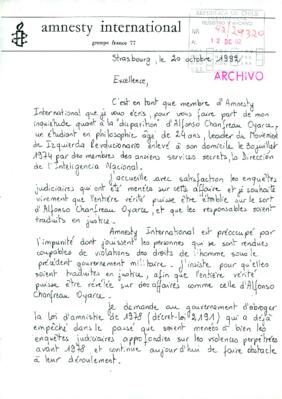 amnesty international
groupe france 77
REPUBLICA DE CHILE
ARCHIVO
Strasbourg, le 20 octobre 1992
Excellence,
C'est en tant que membre d'Amnesty
International que je vous écris, pour vous faire part de mon
inquiétude quant à la "disparition" d'Alfonso Chanfreau Oyarce,
un étudiant en philosophie âgé de 24 ans, leader du Movimiento
de Izquierda Revolucionario enlevé à son domicile le 30 juillet
1974 par des membres des anciens services secrets, la Dirección
de l'Inteligencia Nacional.
J'accueille avec satisfaction les enquêtes
judiciaires qui ont été menées sur cette affaire et je souhaite
vivement que l'entière vérité puisse être établie sur le sort
d'Alfonso Chanfreau Oyarce, et que les responsables soient
traduits en justice.
Amnesty International est préoccupé par
l'impunité dont jouissent les personnes qui se sont rendues
coupables de violations des droits de l'homme sous le
précédent gouvernement militaire. J'insiste pour qu'elles
soient traduites en justice, afin que l'entière vérité
puisse être révélée sur des affaires comme celle d'Alfonso
Chanfreau Oyarce.
Je demande au gouvernement d'abroger
la loi d'amnistie de 1978 (décret-loi 2191) qui a déjà
empêché dans le passé que soient menées à bien les
enquêtes judiciaires approfondies sur les violences perpétrées
avant 1978 et continue aujourd'hui de faire obstacle
à leur déroulement.